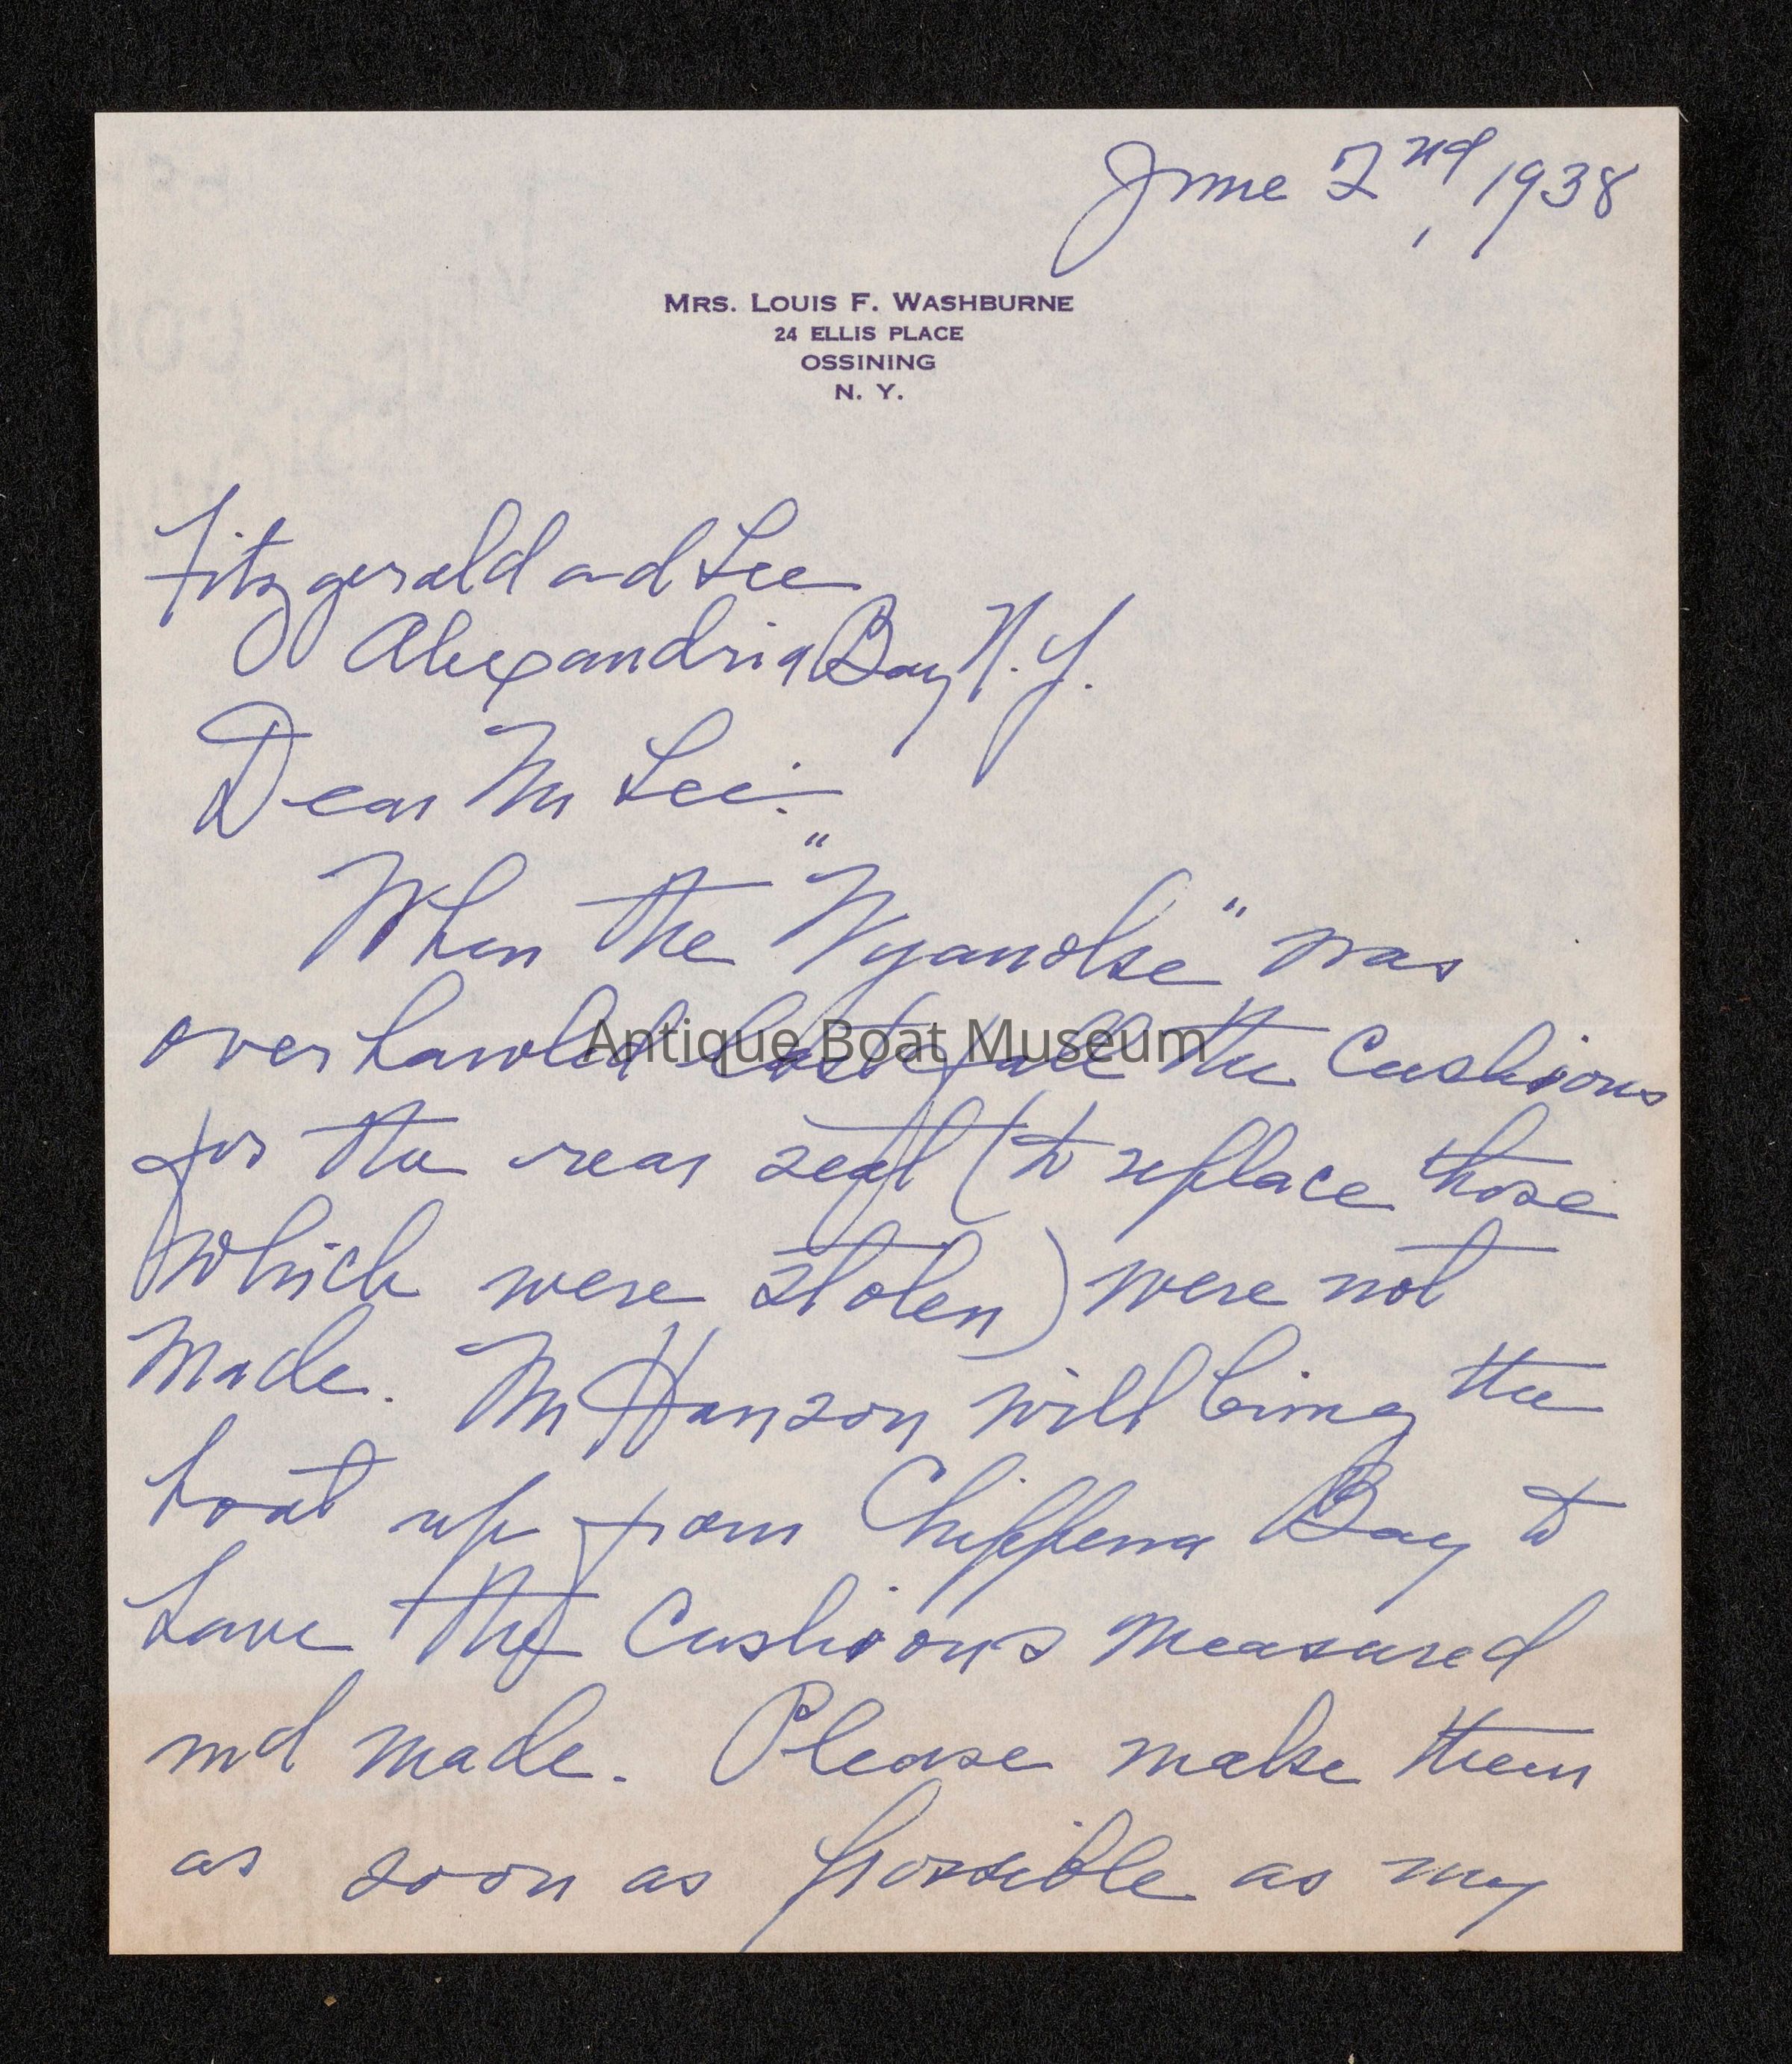 June 2nd, 1938
MRS. LOUIS F. WASHBURNE
24 ELLIS PLACE
OSSINING
N. Y.
Fitzgerald and Lee
Alexandria Bay N. Y.
Dear Mr Lee:
When the "Nyanoke" was
overhawled last fall the cushions
for the rear seat (to replace those
which were stolen) were not
made. Mr Hanson will bring the
boat up from Chippewa Bay to
have the cushions measured
and made. Please make them
as soon as possible as my
Antique Boat Museum